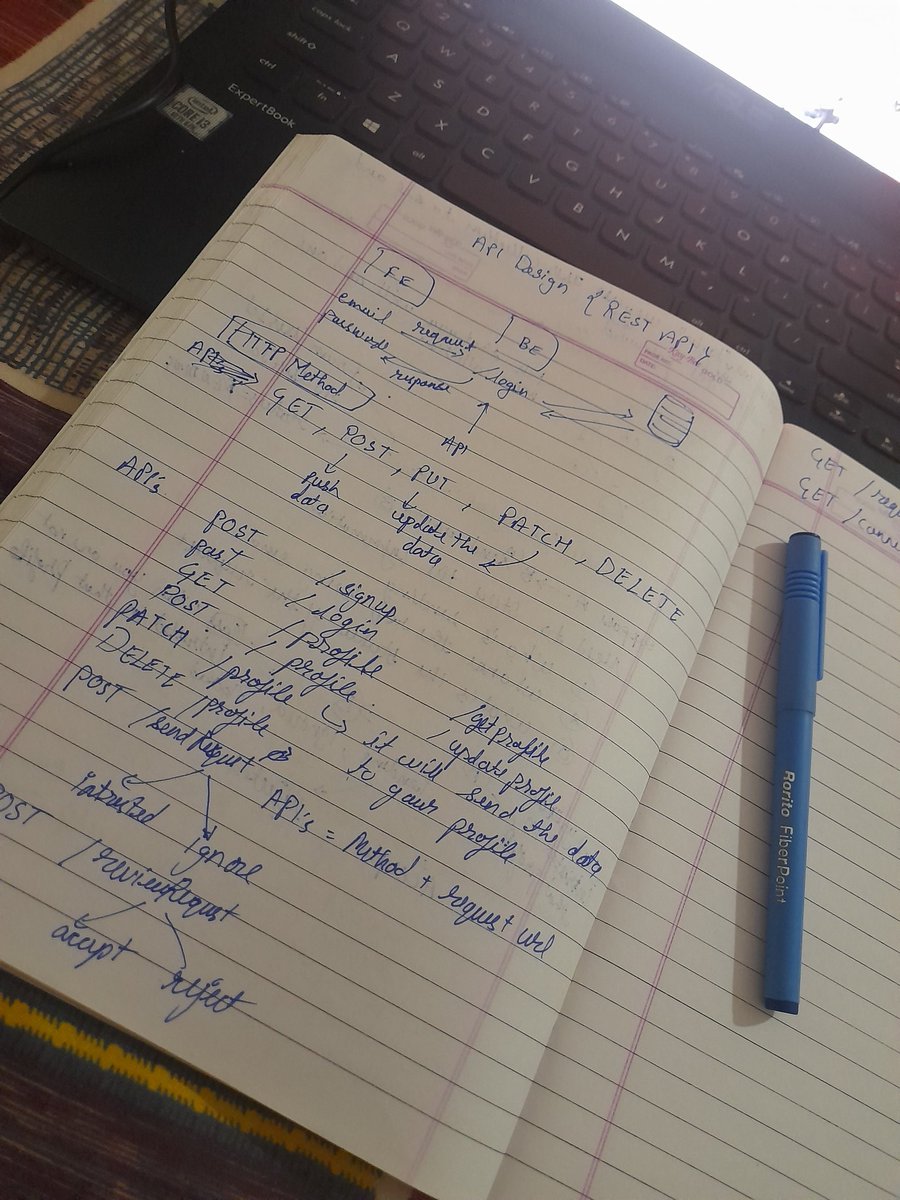 intel
CORE i3
ExpertBook
caps lock
shift
ctrl
fn
alt
Q W E R T Y U I O P
A S D F G H J K L
Z X C V B N M
API Design { REST API }
FE
email request
BE
password
response
/login
HTTP Method
API
GET, POST, PUT, PATCH, DELETE
Push data
update the data
API's
POST /signup
post /login
GET /profile /getprofile
POST /profile
PATCH /profile
it will send the data to your profile
DELETE /profile
POST
Intrested
Ignore
API's = Method + request url
POST /reviewRequest
accept
reject
GET
GET
Rorito FiberPoint